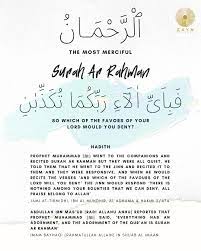 ZAYN
الرَّحْمَـٰنُ
THE MOST MERCIFUL
Surah Ar Rahman
فَبِأَيِّ آلَاءِ رَبِّكُمَا تُكَذِّبَانِ
SO WHICH OF THE FAVORS OF YOUR
LORD WOULD YOU DENY?
HADITH
PROPHET MUHAMMAD ﷺ WENT TO THE COMPANIONS AND
RECITED SURAH AR RAHMAN BUT THEY WERE ALL QUIET. HE
TOLD THEM THAT HE WENT TO THE JINN AND RECITED IT TO
THEM AND THEY WERE RESPONSIVE, AND WHEN HE WOULD
RECITE THE VERSES "AND WHICH OF THE FAVOURS OF THE
LORD WILL YOU DENY" THE JINN WOULD RESPOND "THERE IS
NOTHING AMONG YOUR BOUNTIES THAT WE CAN DENY, ALL
PRAISE BELONG TO ALLAH"
ABDULLAH IBN MAS'UD (RADI ALLAHU ANHU) REPORTED THAT
PROPHET MUHAMMAD ﷺ SAID, "EVERYTHING HAS AN
ADORNMENT, AND THE ADORNMENT OF THE QURAN IS SURAH
AR RAHMAN"